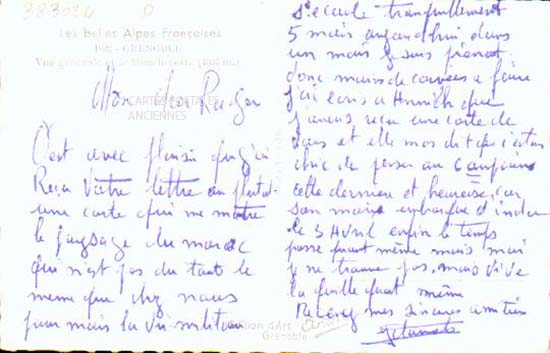 383034
Les belles Alpes Françaises
GRENOBLE
Mon cher
CARTES POSTALES
ANCIENNES
C'est avec plaisir que j'ai
Reçu Votre lettre ou plutôt
une carte qui me montre
le paysage du maroc
qui n'est pas du tout le
même que chez nous
pour moi la vie militaire
s'ecoule tranquillement
5 mois aujourd'hui dans
un mois je suis
donc moins de corvées a faire
j'ai ecris a que
j'avais reçu une carte de
vous et elle m'as dit que c'etait
chic de penser au
cette derniere et heureuse, car
son mari embarque d'indo
le 3 AVril enfin le temps
passe quant même mais moi
je ne trouve pas, mais ViVe
la quille quant même
Recevez mes sinceres amitiés
Edition d'Art
Grenoble